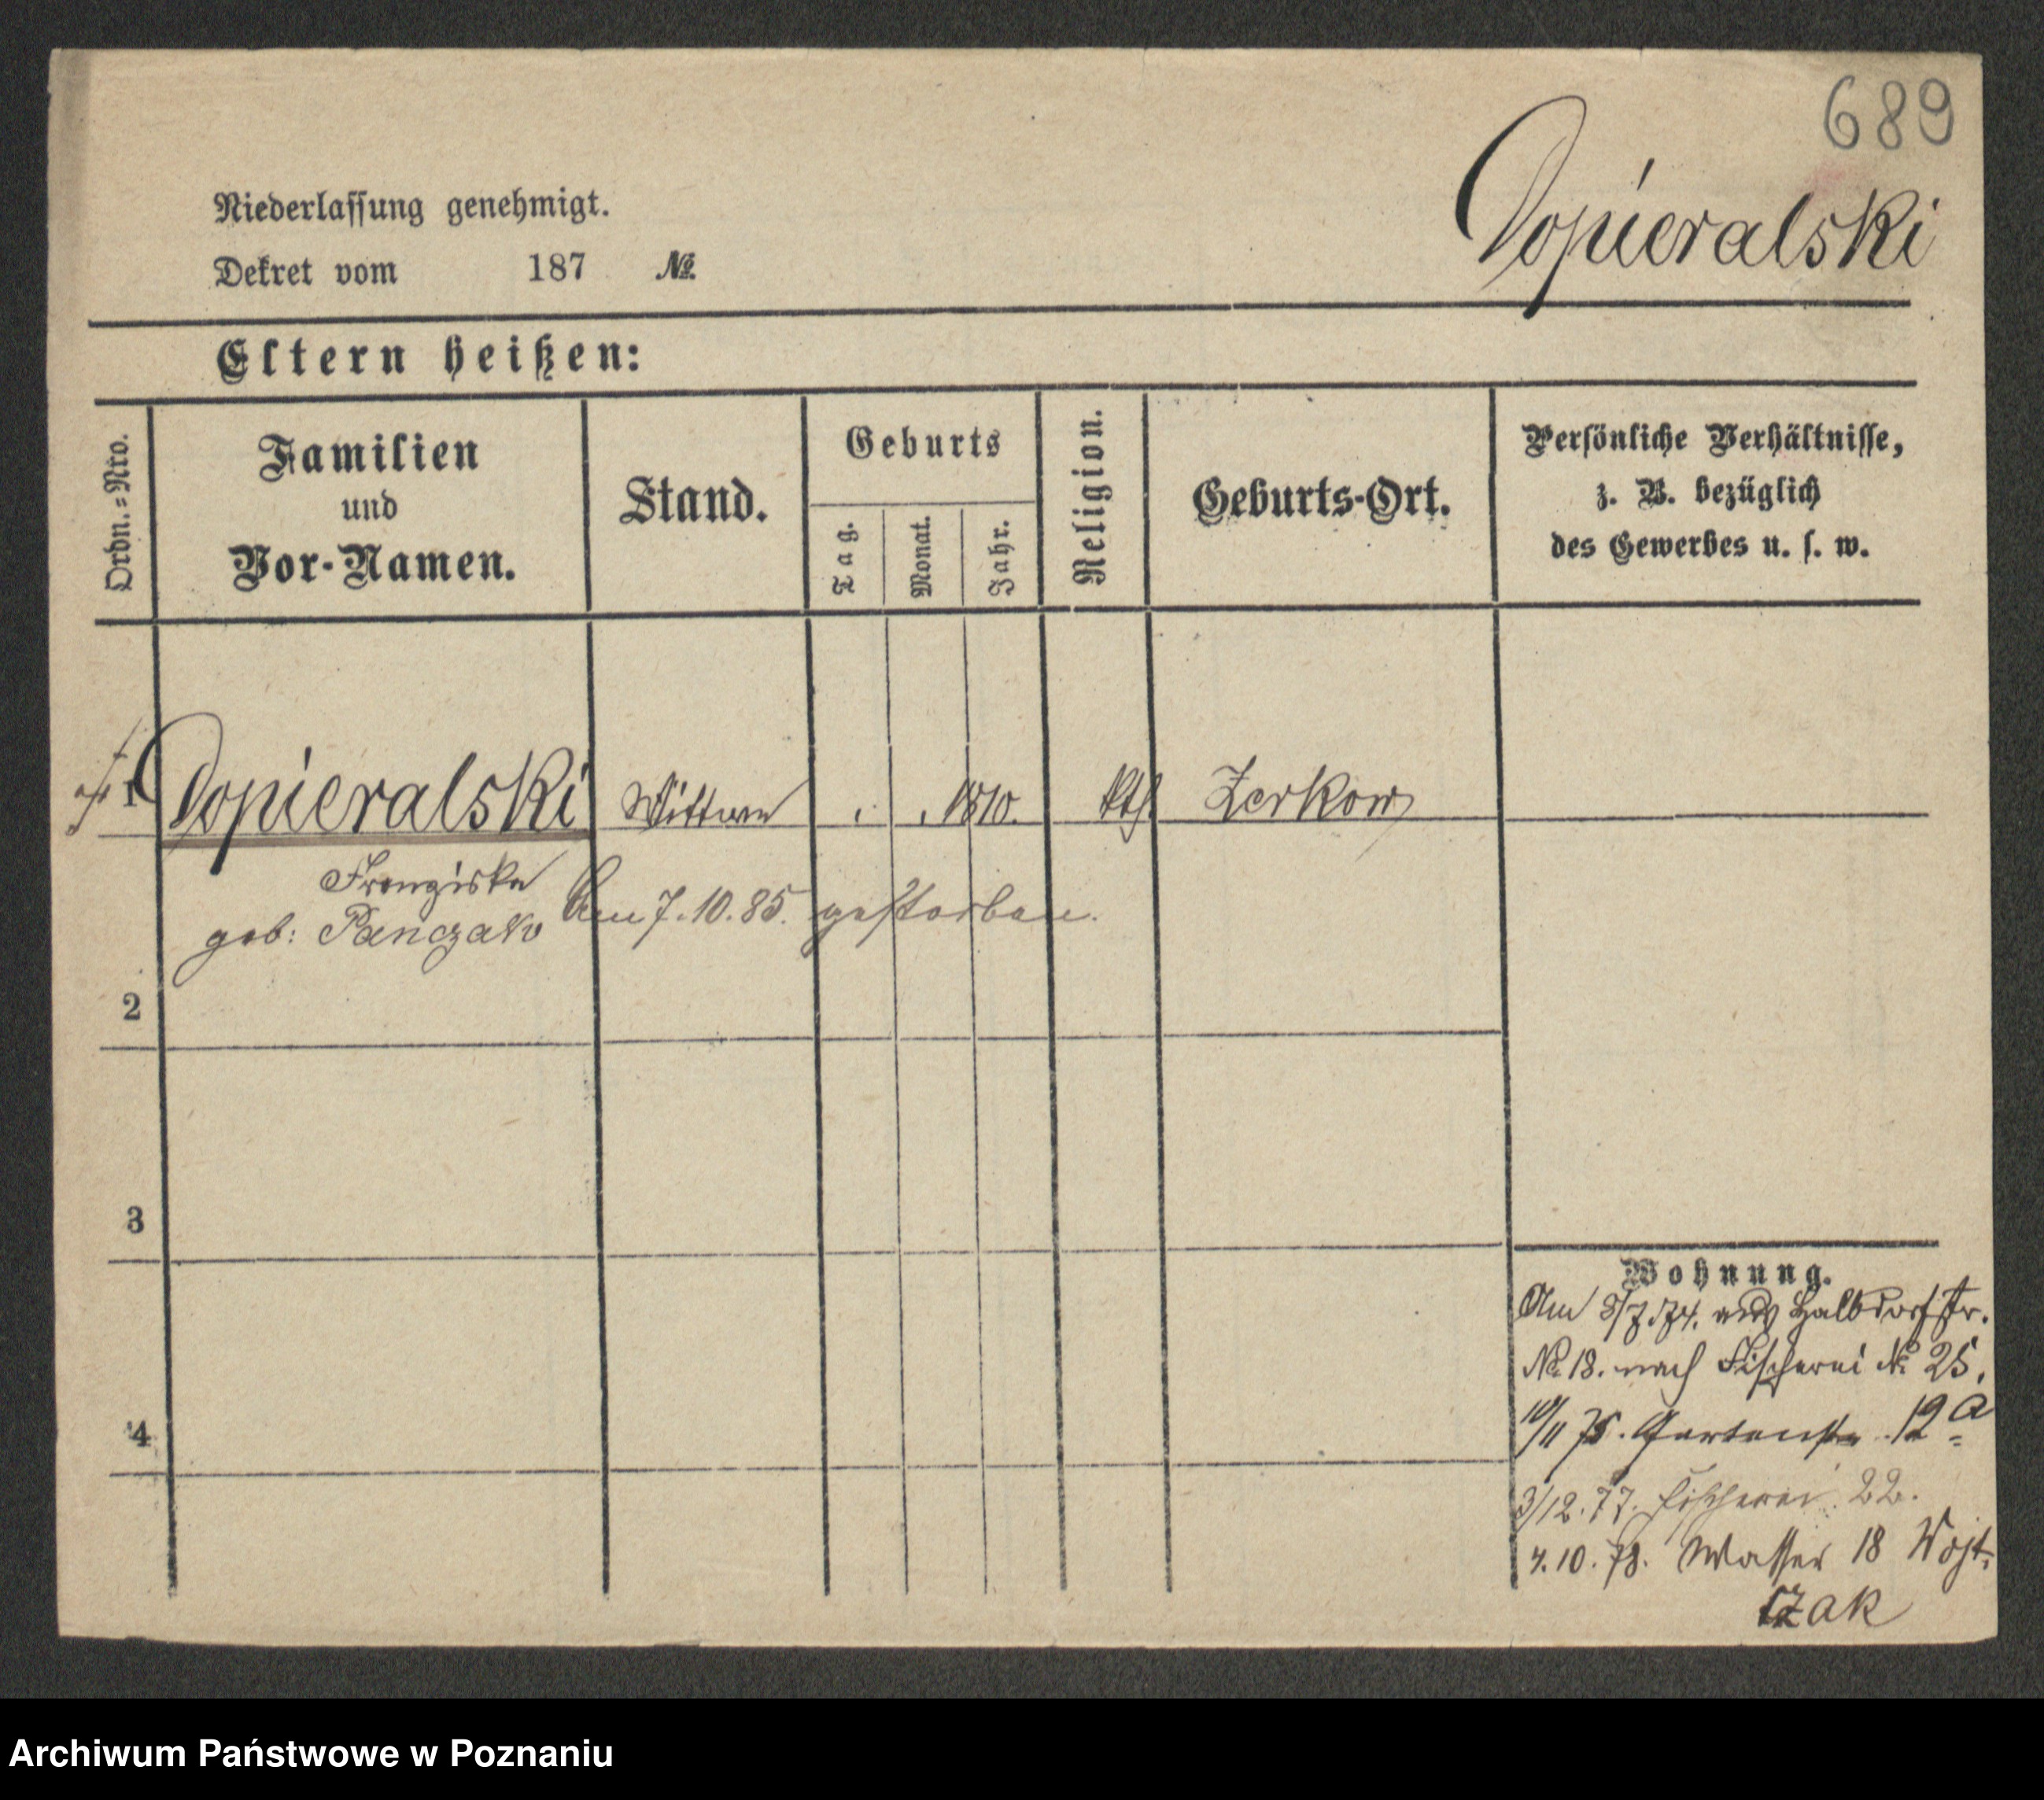 689
Niederlassung genehmigt.
Dekret vom 187 №
Dopieralski
Eltern heißen:
Ordn.=Nro.
Familien
und
Vor-Namen.
Stand.
Geburts
Tag.
Monat.
Jahr.
Religion.
Geburts-Ort.
Persönliche Verhältnisse,
z. B. bezüglich
des Gewerbes u. s. w.
1 Dopieralski Wittwe 1810. kth Zerkow
Franziska
geb: Panczak Am 7.10.85. gestorben.
2
3
4
Wohnung.
Am 8/7.74. aus Halbdorfstr.
No. 18. nach Fischerei No. 25.
10/11 75. Gartenstr. 12 a
3/12.77. Fischerei 22.
4.10.78. Wasser 18 Wojt-
czak
Archiwum Państwowe w Poznaniu